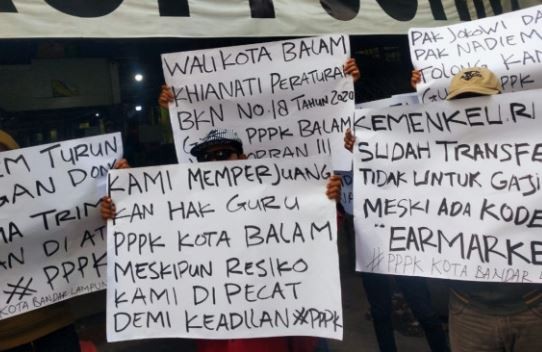 WALIKOTA BALAM
KHIANATI PERATURAN
BKN NO.18 TAHUN 2020
PPPK BALAM
PAK JOKOWI
PAK NADIEM
TOLONG
PPPK
EM TURUN
GAN DON
MA TRIM
AN DI AT
# PPPK
KOTA BANDAR LAMPUN
KAMI MEMPERJUANG
KAN HAK GURU
PPPK KOTA BALAM
MESKIPUN RESIKO
KAMI DIPECAT
DEMI KEADILAN #PPPK
KEMENKEU.RI
SUDAH TRANSFE
TIDAK UNTUK GAJI
MESKI ADA KODE
"EARMARKE
#PPPK KOTA BANDAR LAM